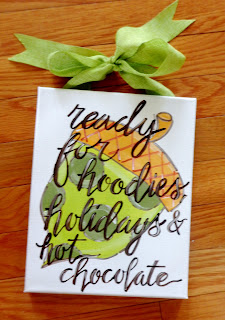 ready
for
hoodies,
holidays &
hot
chocolate